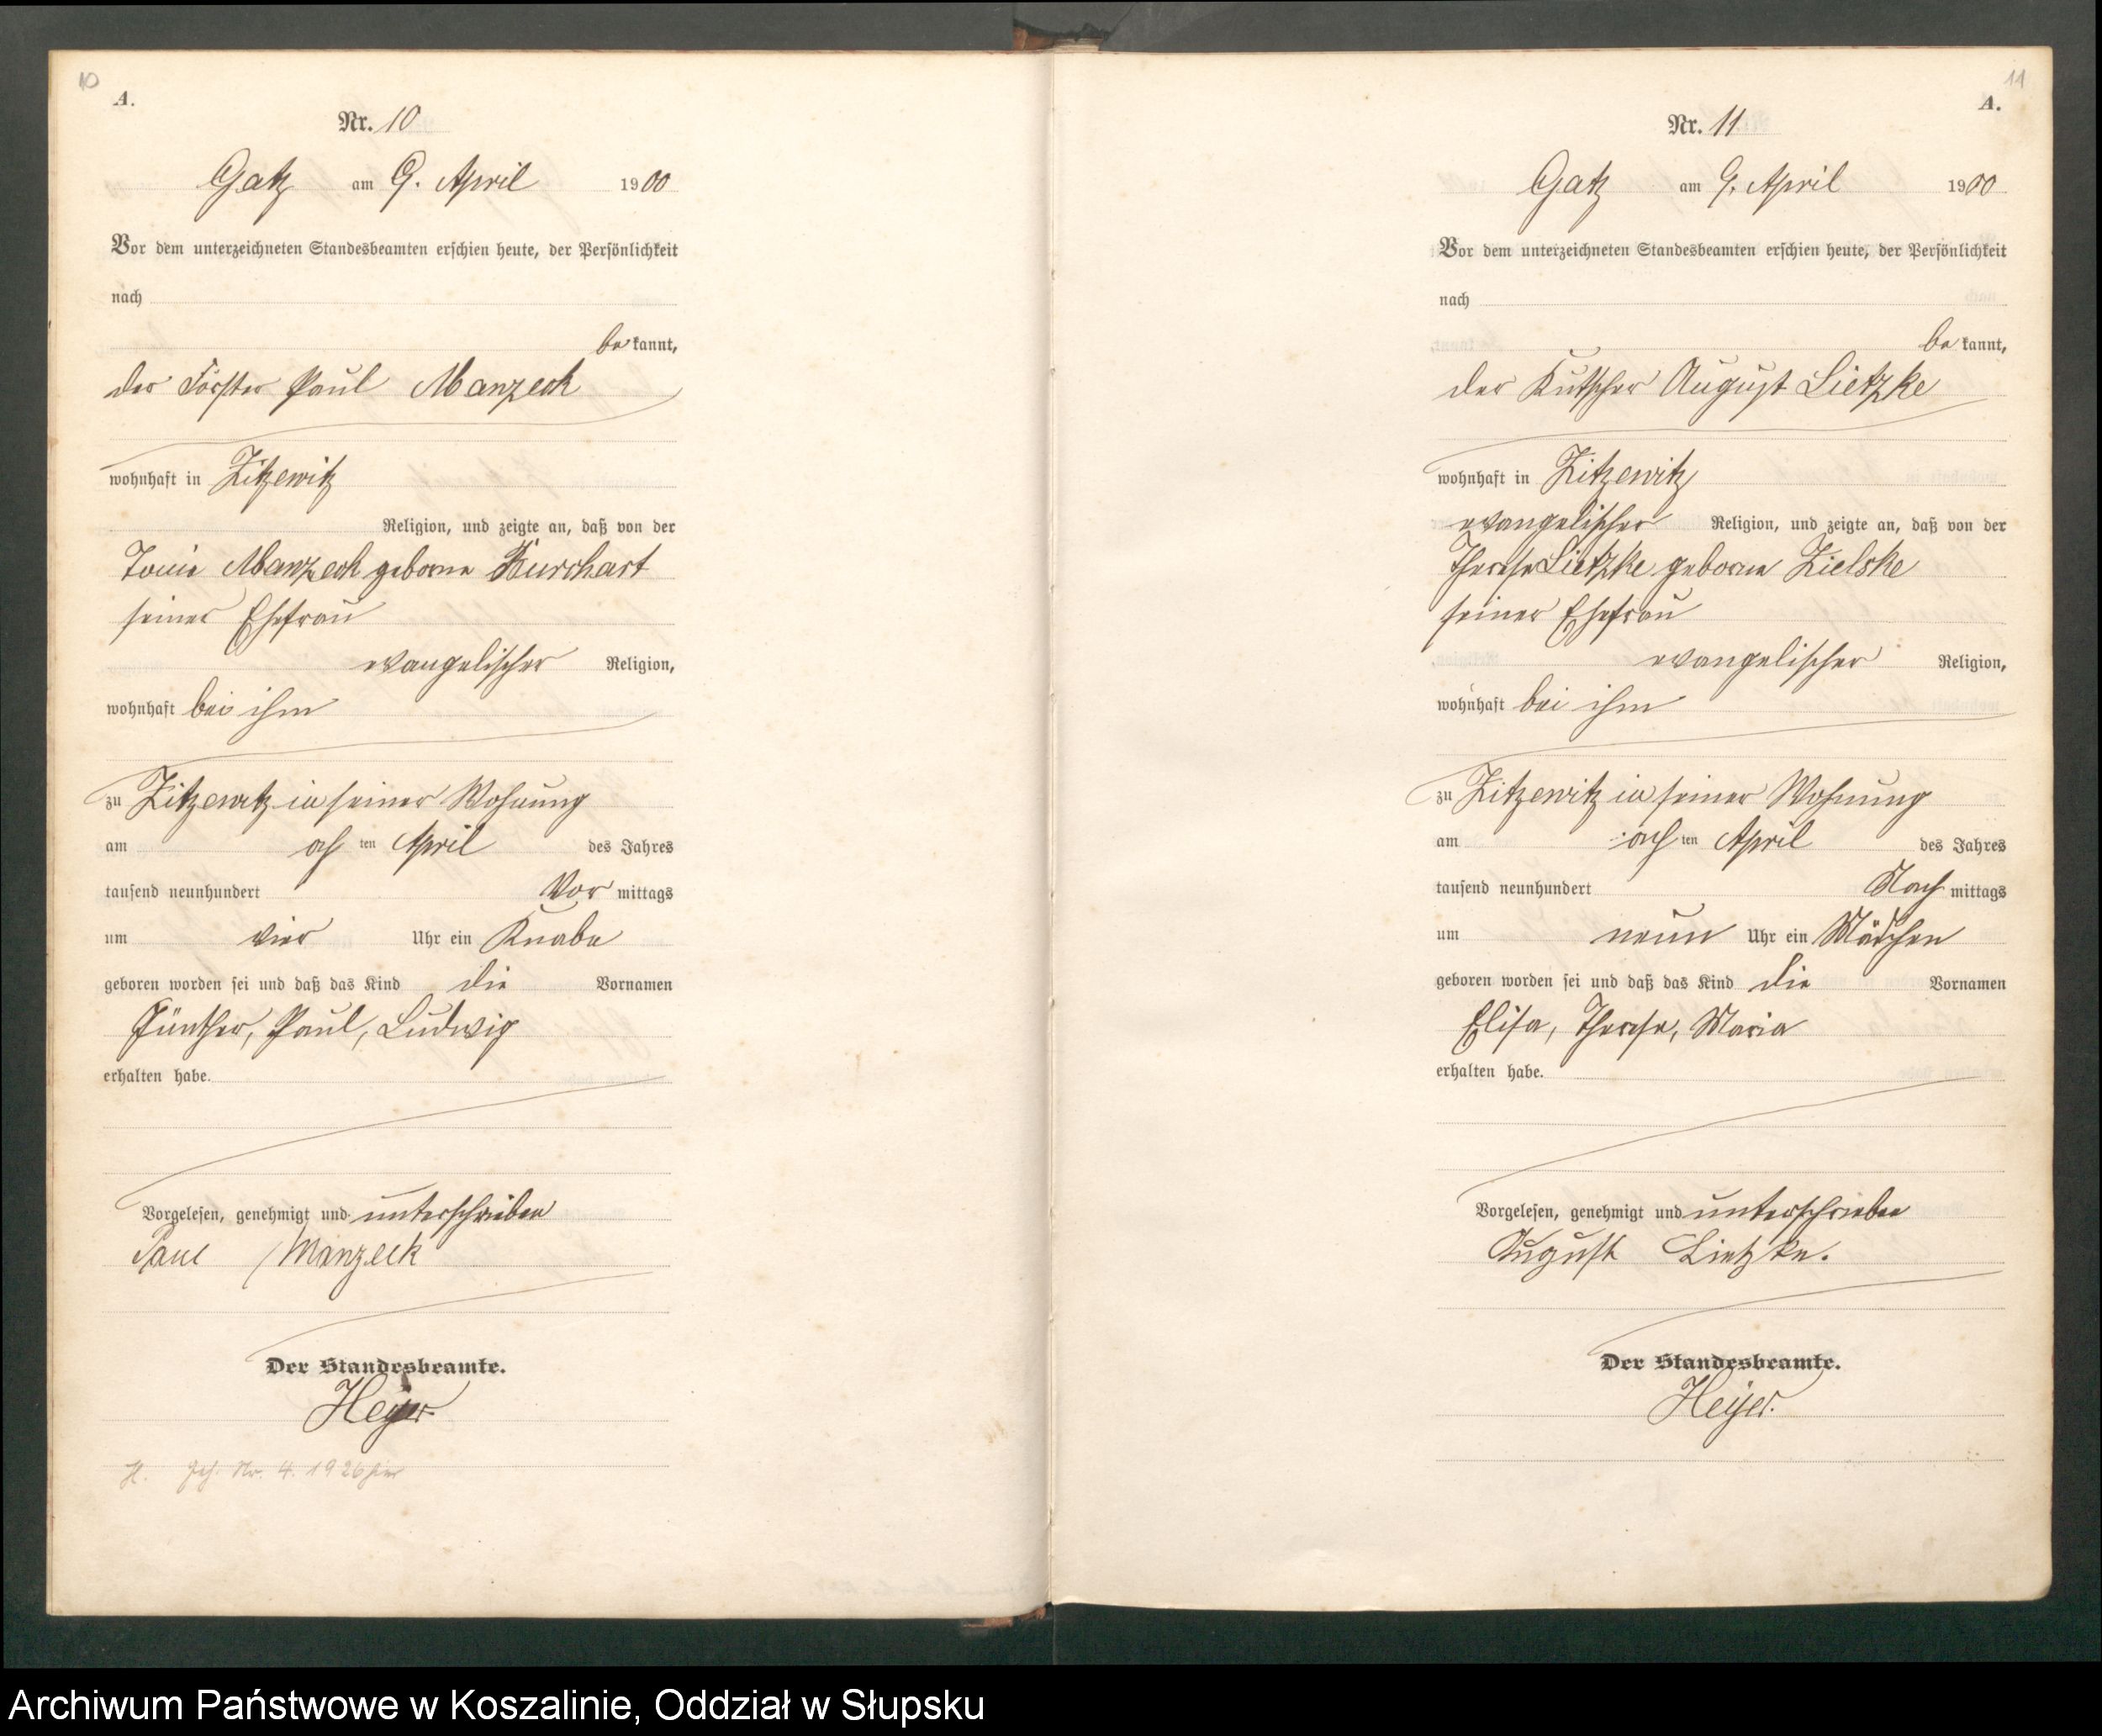 10
A.
Nr. 10
Gatz am 9. April 1900
Vor dem unterzeichneten Standesbeamten erschien heute, der Persönlichkeit
nach
be kannt,
der Förster Paul Manzeck
wohnhaft in Zitzewitz
Religion, und zeigte an, daß von der
Manzeck geborne Burchart
seiner Ehefrau
evangelischer Religion,
wohnhaft bei ihm
zu Zitzewitz in seiner Wohnung
am ach ten April des Jahres
tausend neunhundert Vor mittags
um vier Uhr ein Knabe
geboren worden sei und daß das Kind die Vornamen
Günther, Paul, Ludwig
erhalten habe.
Vorgelesen, genehmigt und unterschrieben
Paul Manzeck
Der Standesbeamte.
Heyer.
H. Geh. Nr. 4. 1926 hier
11
A.
Nr. 11
Gatz am 9. April 1900
Vor dem unterzeichneten Standesbeamten erschien heute, der Persönlichkeit
nach
be kannt,
der Kutscher August Lietzke
wohnhaft in Zitzewitz
evangelischer Religion, und zeigte an, daß von der
Therese Lietzke geborne Zielske
seiner Ehefrau
evangelischer Religion,
wohnhaft bei ihm
zu Zitzewitz in seiner Wohnung
am ach ten April des Jahres
tausend neunhundert Nach mittags
um neun Uhr ein Mädchen
geboren worden sei und daß das Kind die Vornamen
Elisa, Therese, Maria
erhalten habe.
Vorgelesen, genehmigt und unterschrieben
August Lietzke.
Der Standesbeamte.
Heyer.
Archiwum Państwowe w Koszalinie, Oddział w Słupsku